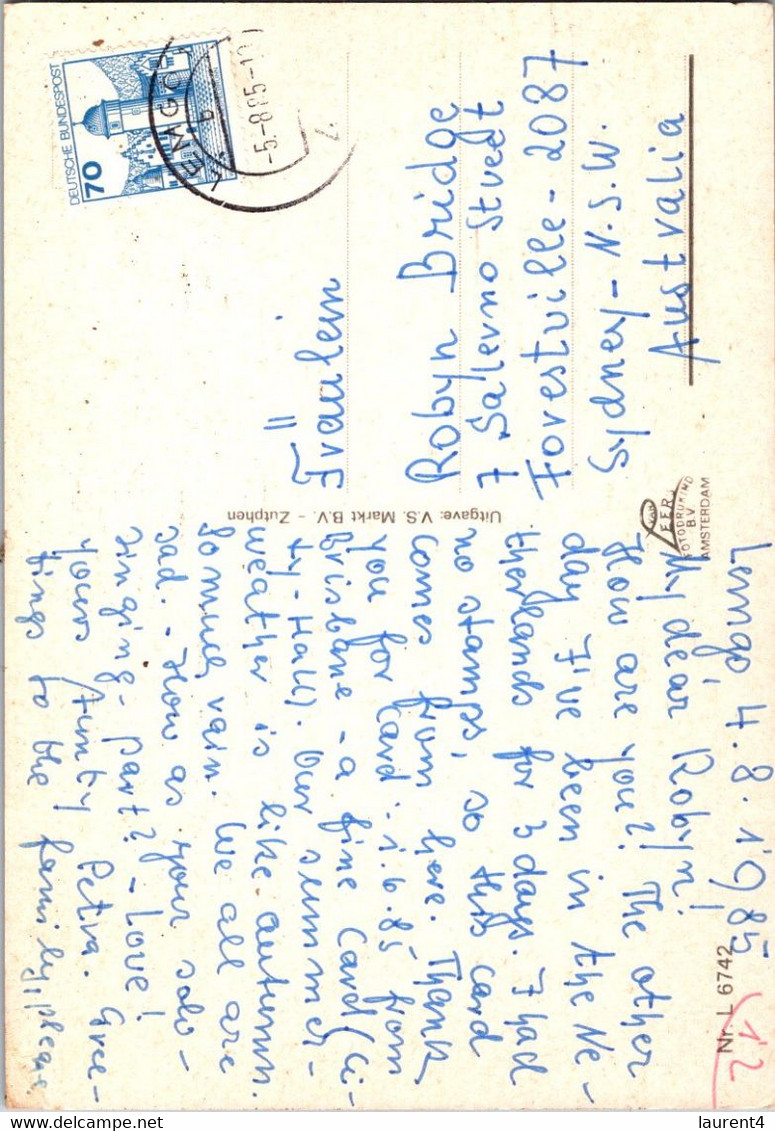 Lemgo 4.8.1985
My dear Robyn!
How are you? The other
day I've been in the Ne-
therlands for 3 days. I had
no stamps, so this card
comes from here. Thank
you for card 1.6.85 from
Brisbane - a fine card (Ci-
ty-Hall). Our summer-
weather is like autumn.
So much rain. We all are
sad. - How as your solo-
singing-part? - Love!
yours Petra. Gree-
tings to the family, please.
Uitgave: V.S. Markt B.V. - Zutphen
VAN LEER
FOTODRUKIND
B.V.
AMSTERDAM
Nr. L 6742
12
DEUTSCHE BUNDESPOST
70
LEMGO
-5.-8.85-
Fräulein
Robyn Bridge
7 Salerno Street
Forestville - 2087
Sydney - N.S.W.
Australia
laurent4